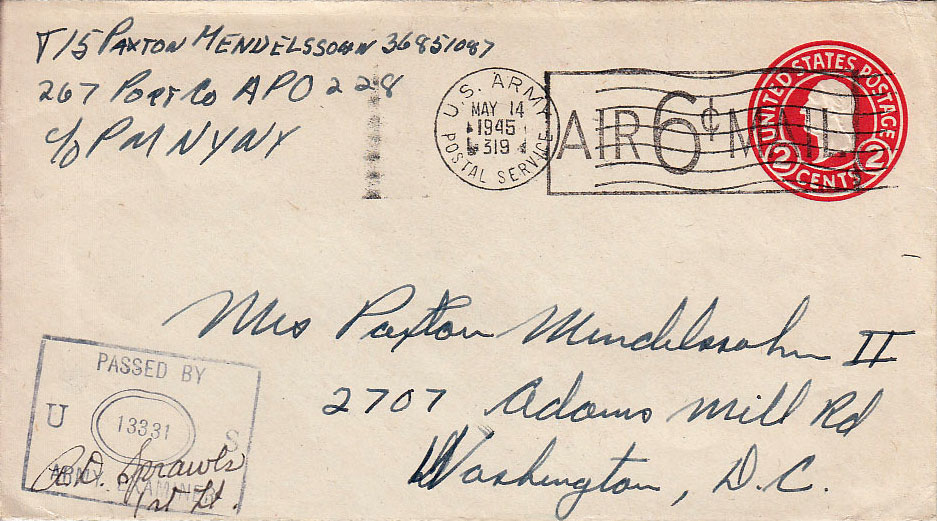 T/5 PAXTON MENDELSSOHN 36851087
267 PORT CO APO 228
c/o PM NYNY
U.S. ARMY
MAY 14
1945
319
POSTAL SERVICE
AIR 6¢ MAIL
UNITED STATES POSTAGE
2 CENTS 2
Mrs Paxton Mendelssohn II
2707 Adams Mill Rd
Washington, D.C.
PASSED BY
U 13331 S
ARMY EXAMINER
Sprawls
1st Lt.